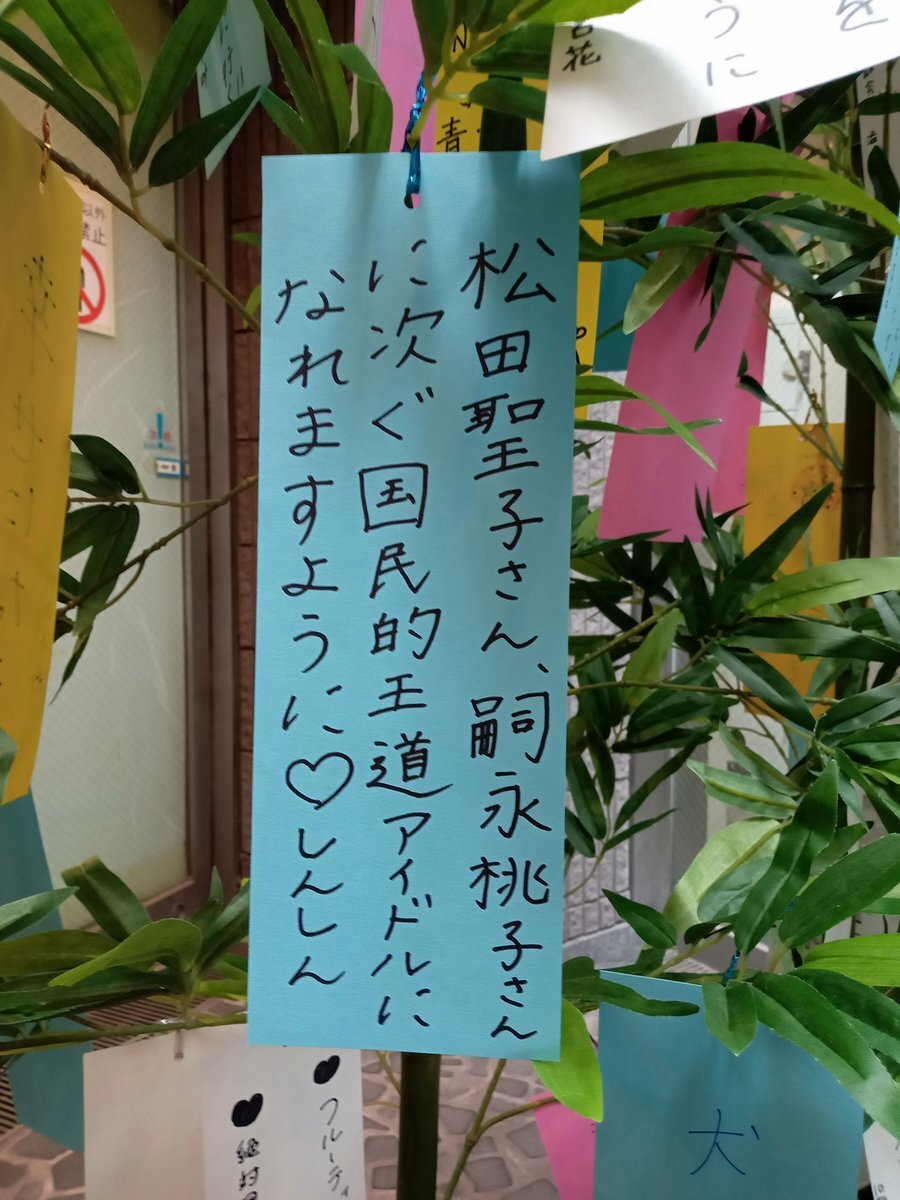 松田聖子さん、嗣永桃子さん
に次ぐ国民的王道アイドルに
なれますように♡しんしん
うに
を
花
N
青
以外
禁止
犬
フルーティ
絶対